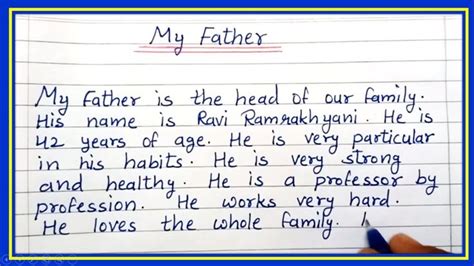 My Father
My Father is the head of our family.
His name is Ravi Ramrakhyani. He is
42 years of age. He is very particular
in his habits. He is very strong
and healthy. He is a professor by
profession. He works very hard.
He loves the whole family.